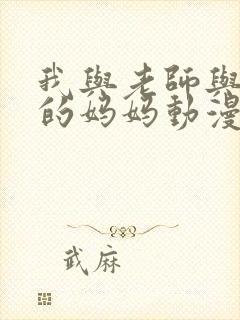 我與老師與
的媽媽動漫
武麻